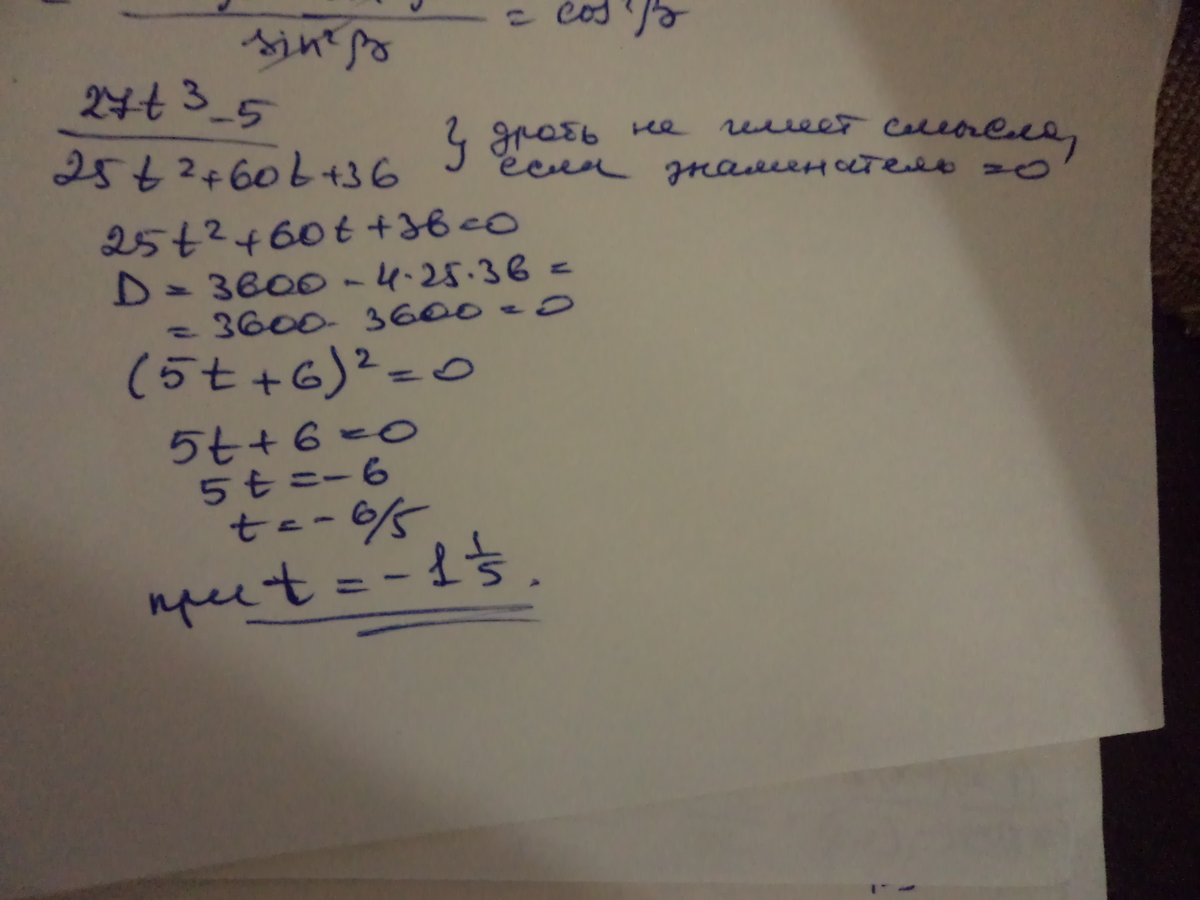 = cos²β
sin²β
27t³-5
25t²+60t+36 } дробь не имеет смысла,
если знаминатель =0
25t²+60t+36=0
D = 3600 - 4·25·36 =
= 3600 - 3600 = 0
(5t+6)² = 0
5t+6=0
5t=-6
t=-6/5
при t = -1 1/5.